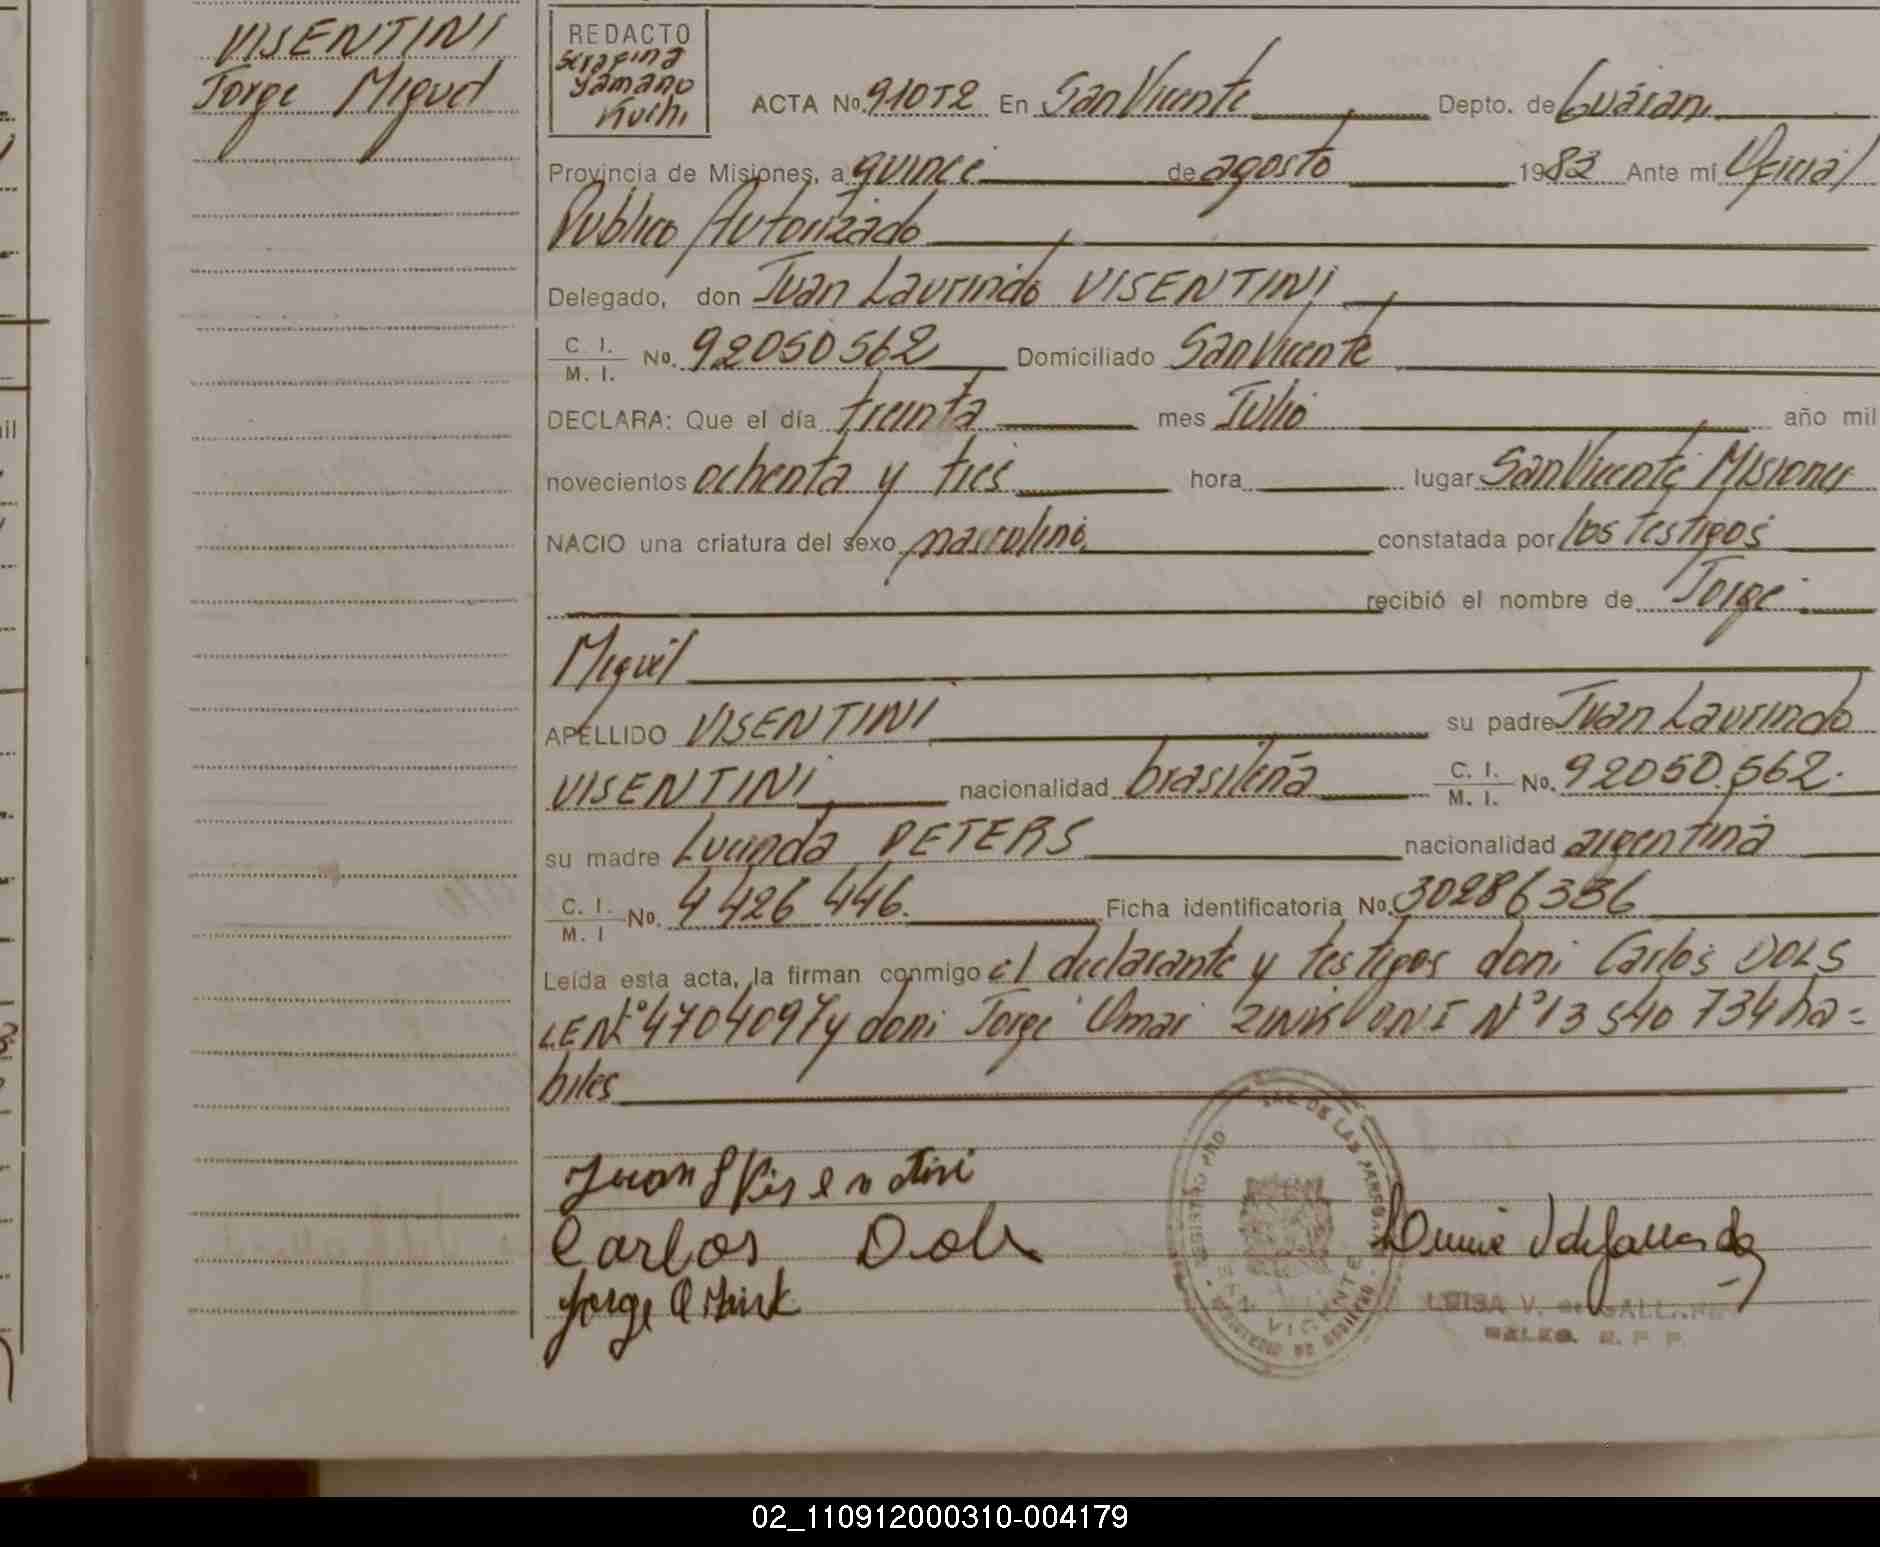 VISENTINI
Jorge Miguel
REDACTO
Serafina
Yamano
Kuchi
ACTA No. 910T2 En San Vicente Depto. de Guaraní
Provincia de Misiones, a quince de agosto 1983 Ante mí Oficial
Publico Autorizado
Delegado, don Juan Laurindo VISENTINI
C. I. / M. I. No. 92050562 Domiciliado San Vicente
DECLARA: Que el día treinta mes Julio año mil
novecientos ochenta y tres hora lugar San Vicente Misiones
NACIO una criatura del sexo masculino constatada por los testigos
recibió el nombre de Jorge
Miguel
APELLIDO VISENTINI su padre Juan Laurindo
VISENTINI nacionalidad brasileña C. I. / M. I. No. 92050.562.
su madre Lucinda PETERS nacionalidad argentina
C. I. / M. I No. 4426 446. Ficha identificatoria No. 30286336
Leída esta acta, la firman conmigo el declarante y testigos don: Carlos DOLS
LE Nº 4704097 y don: Jorge Omar DNI Nº 13 540 734 ha=
biles
Juan L Visentini
Carlos Dols
Jorge O
DE LAS PERSONAS
SAN VICENTE
LUISA V. de